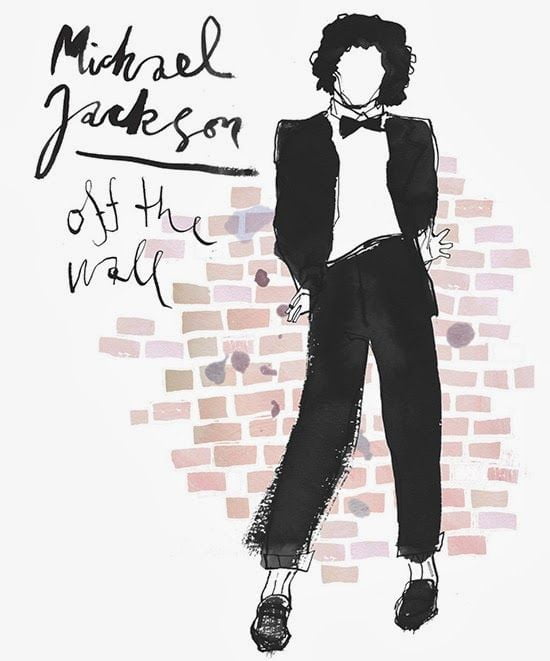 Michael
Jackson
off the
wall